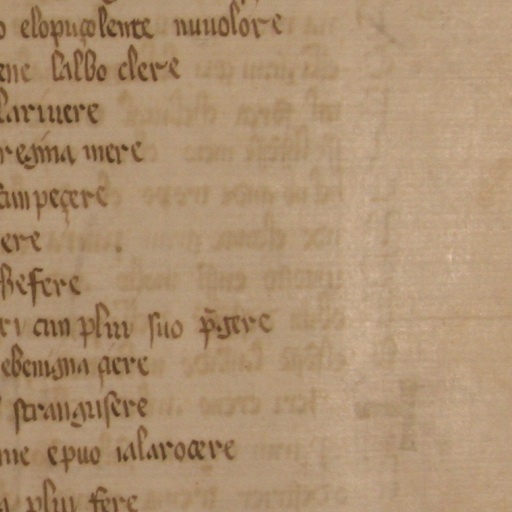 o elopuçolente nuuolore
ene lalbo clere
lariuere
regina mere
cun peçere
ere
fere
cri cun plui suo p̄gere
ebenigna aere
strangusere
me epuo
a plui fere